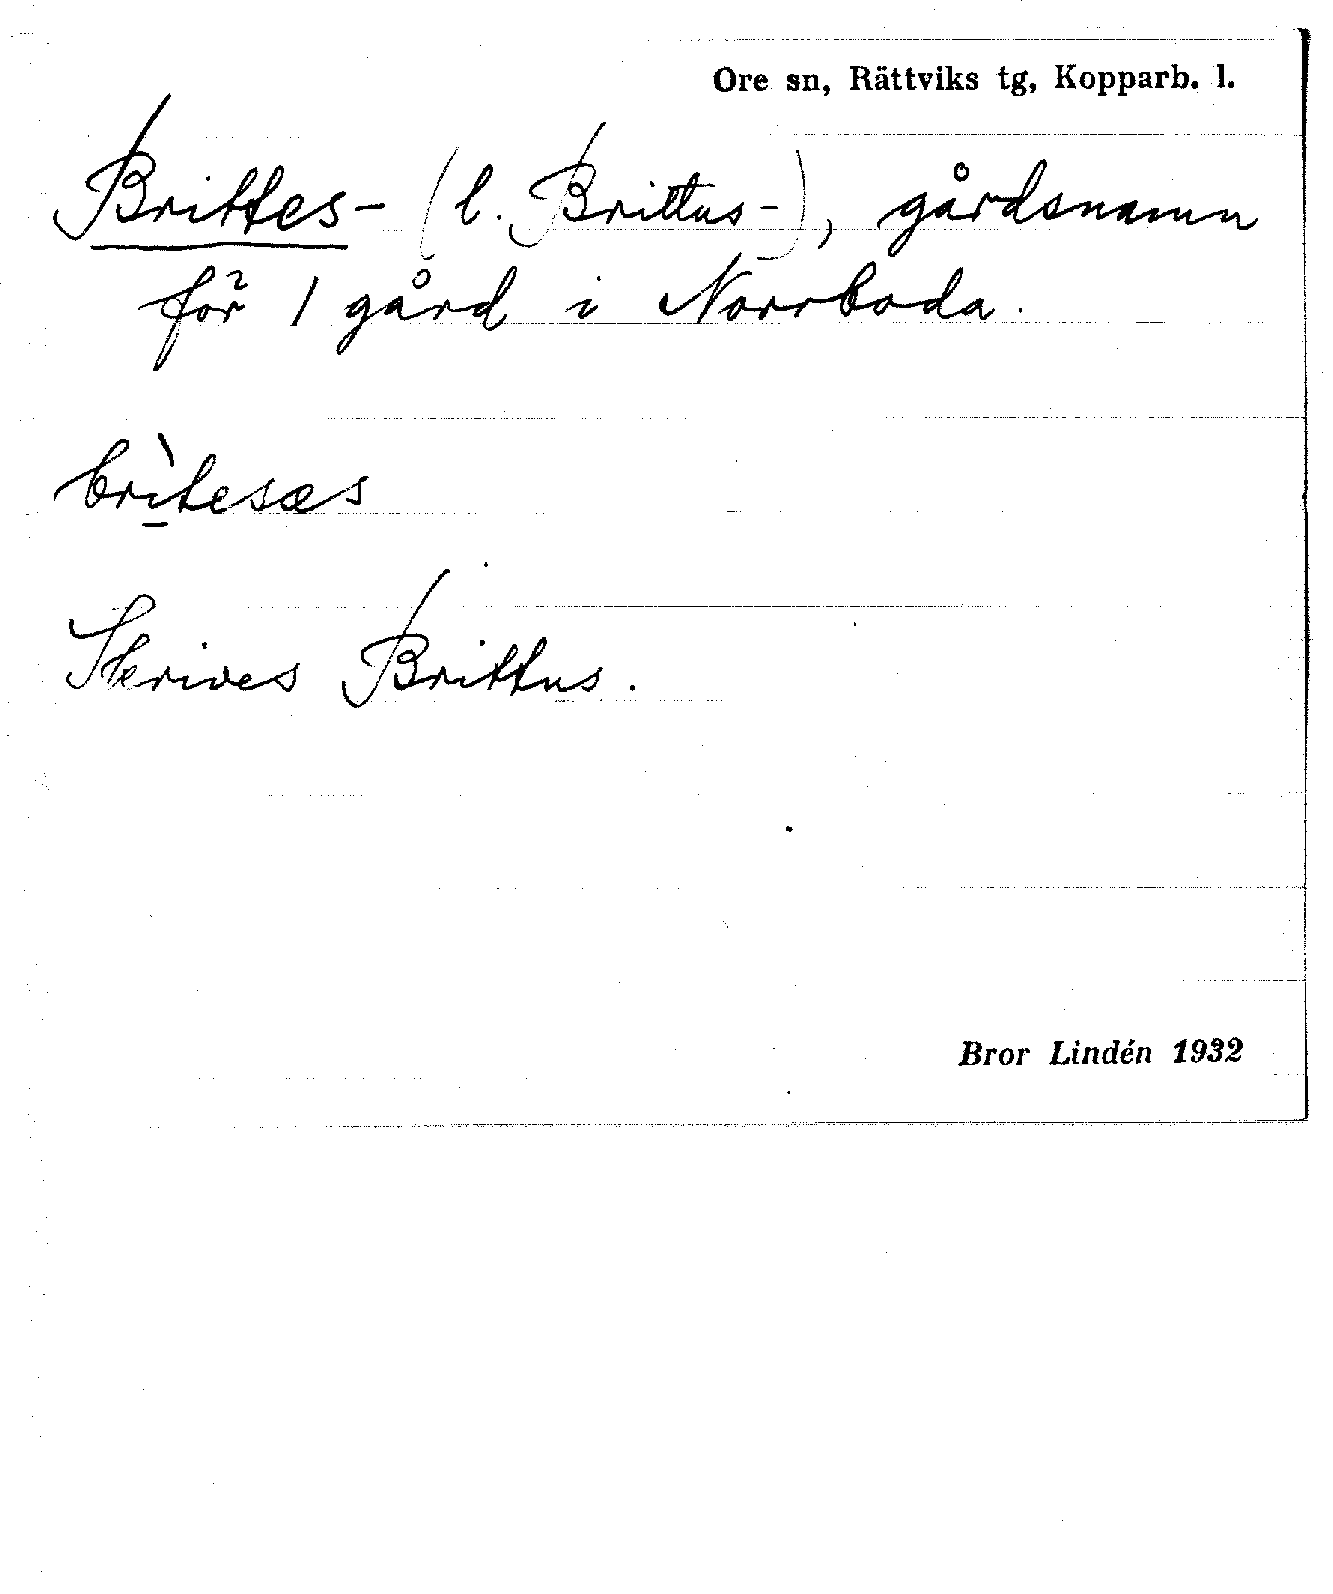 Ore sn, Rättviks tg, Kopparb. l.
Brittes- (l. Brittus-), gårdsnamn
för 1 gård i Norrboda.
brı̱̀tesæs
Skrives Brittus.
Bror Lindén 1932